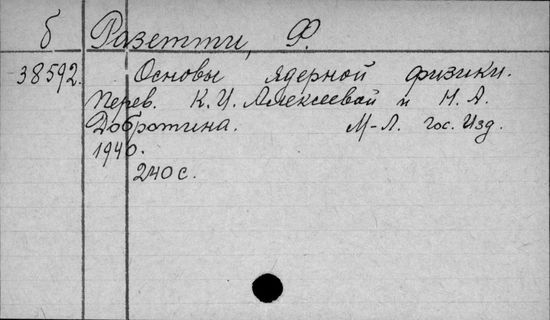 б Разетти, Ф.
38592. Основы ядерной физики.
Перев. К.И. Алексеевой и Н.А.
Добротина. М-Л. гос. Изд.
1940.
240 с.